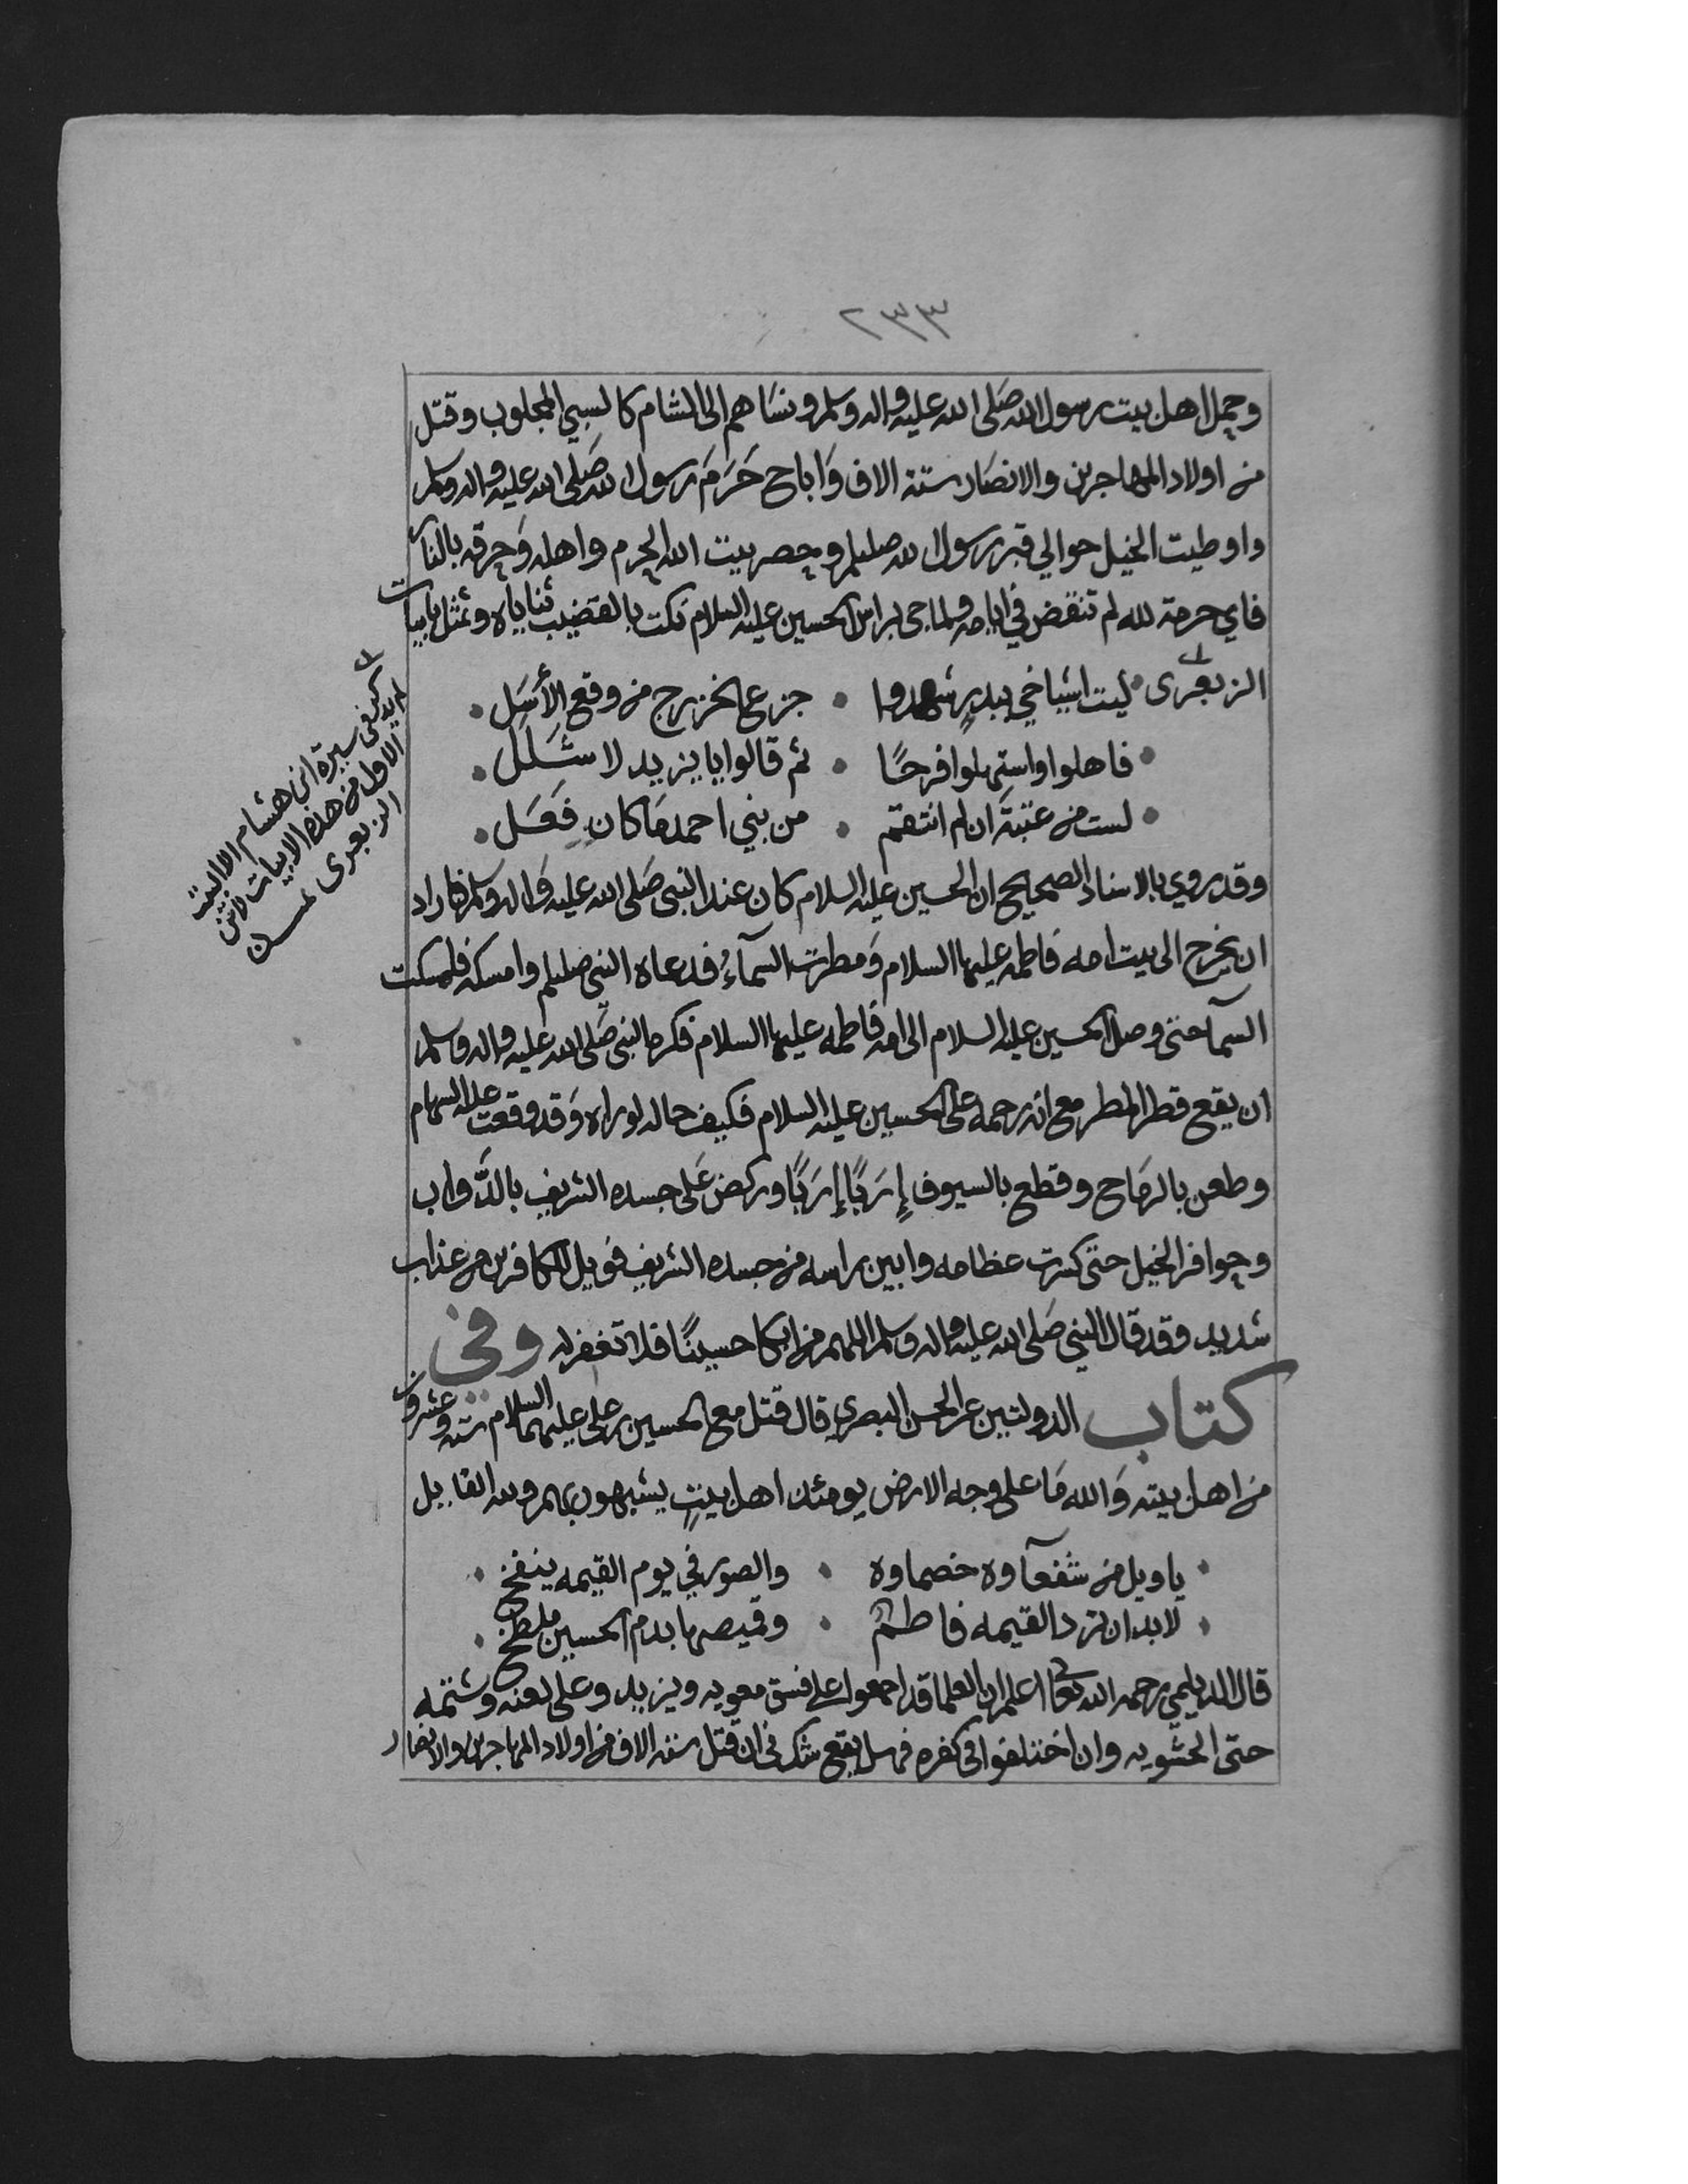 ٢٣٣
وحمل اهل بيت رسول الله صَلى الله عليه واله وسلم ونسَاهم الى الشام كالسبي المجلوب وقتل
من اولاد المهاجرين والانصَار ستة الاف وَاباح حَرَمَ رسول الله صَلى الله عليه واله وسلم
واوطيت الخيل حوالي قبر رسول الله صللم وحصر بيت الله الحرم واهله وَحرقه بالنار
فاي حرمة لله لم تنقض في ايامه ولما جى براس الحسين عليه السلام نكت بالقضيب ثناياه وتمثل بابيات
الزبعرى ليت اشياخي ببدرٍ شهدوا • جزع الخزرج من وقع الأسَل •
• فاهلوا واستهلوا فرحًا • ثم قالوا يا يزيد لا شَلَل •
• لست من عتبةَ ان لم انتقم • من بني احمد مَا كان فَعَل •
وقد روي بالاسناد الصحيح ان الحسين عليه السلام كان عند النبي صَلى الله عليه وَاله وسلم فاراد
ان يخرج الى بيت امه فاطمه عليها السلام وَمطرت السمآءُ فدعاه النبي صللم وامسكه فامسكت
السمآ حتى وصل الحسين عليه السلام الى امه فاطمه عليها السلام فكره النبي صَلى الله عليه واله وسلم
ان يقع قطر المطر مع انه رحمه على الحسين عليه السلام فكيف حاله لو راه وَقد وقعت عليه السهام
وطعن بالرمَاح وقطع بالسيوف إِرَبًا إِرَبًا وركض عَلى جسده الشريف بالدَّواب
وحوافر الخيل حتى كسرت عظامه وابين راسه من جسده الشريف فويل للكافرين من عذاب
شديد وقد قال النبي صَلى الله عليه واله وسلم اللهم من ابكا حسينًا فلا تغفر له وفي
كتاب الدولتين عن الحسن البصري قال قتل مع الحسين بن على عليهما السلام سته وعشرون
من اهل بيته وَالله مَا على وجه الارض يومئذ اهل بيتٍ يشبهون بهم ولله القايل
• يا ويل من شفعآوه خصماوه • والصور في يوم القيمه ينفخ •
• لا بد ان ترد القيمه فاطم • وقميصها بدم الحسين ملطخ •
قال الديلمي رحمه الله تعالى اعلم ان العلما قد اجمعوا على فسق معويه ويزيد وعلى لعنه وشتمه
حتى الحشويه وان اختلفوا في كفره فهل يقع شك في ان قتل سته الاف من اولاد المهاجرين والانصار
لم يذكر في سيرة ابن هشام الا البيت
الاول من هذه الابيات لابن
الزبعرى